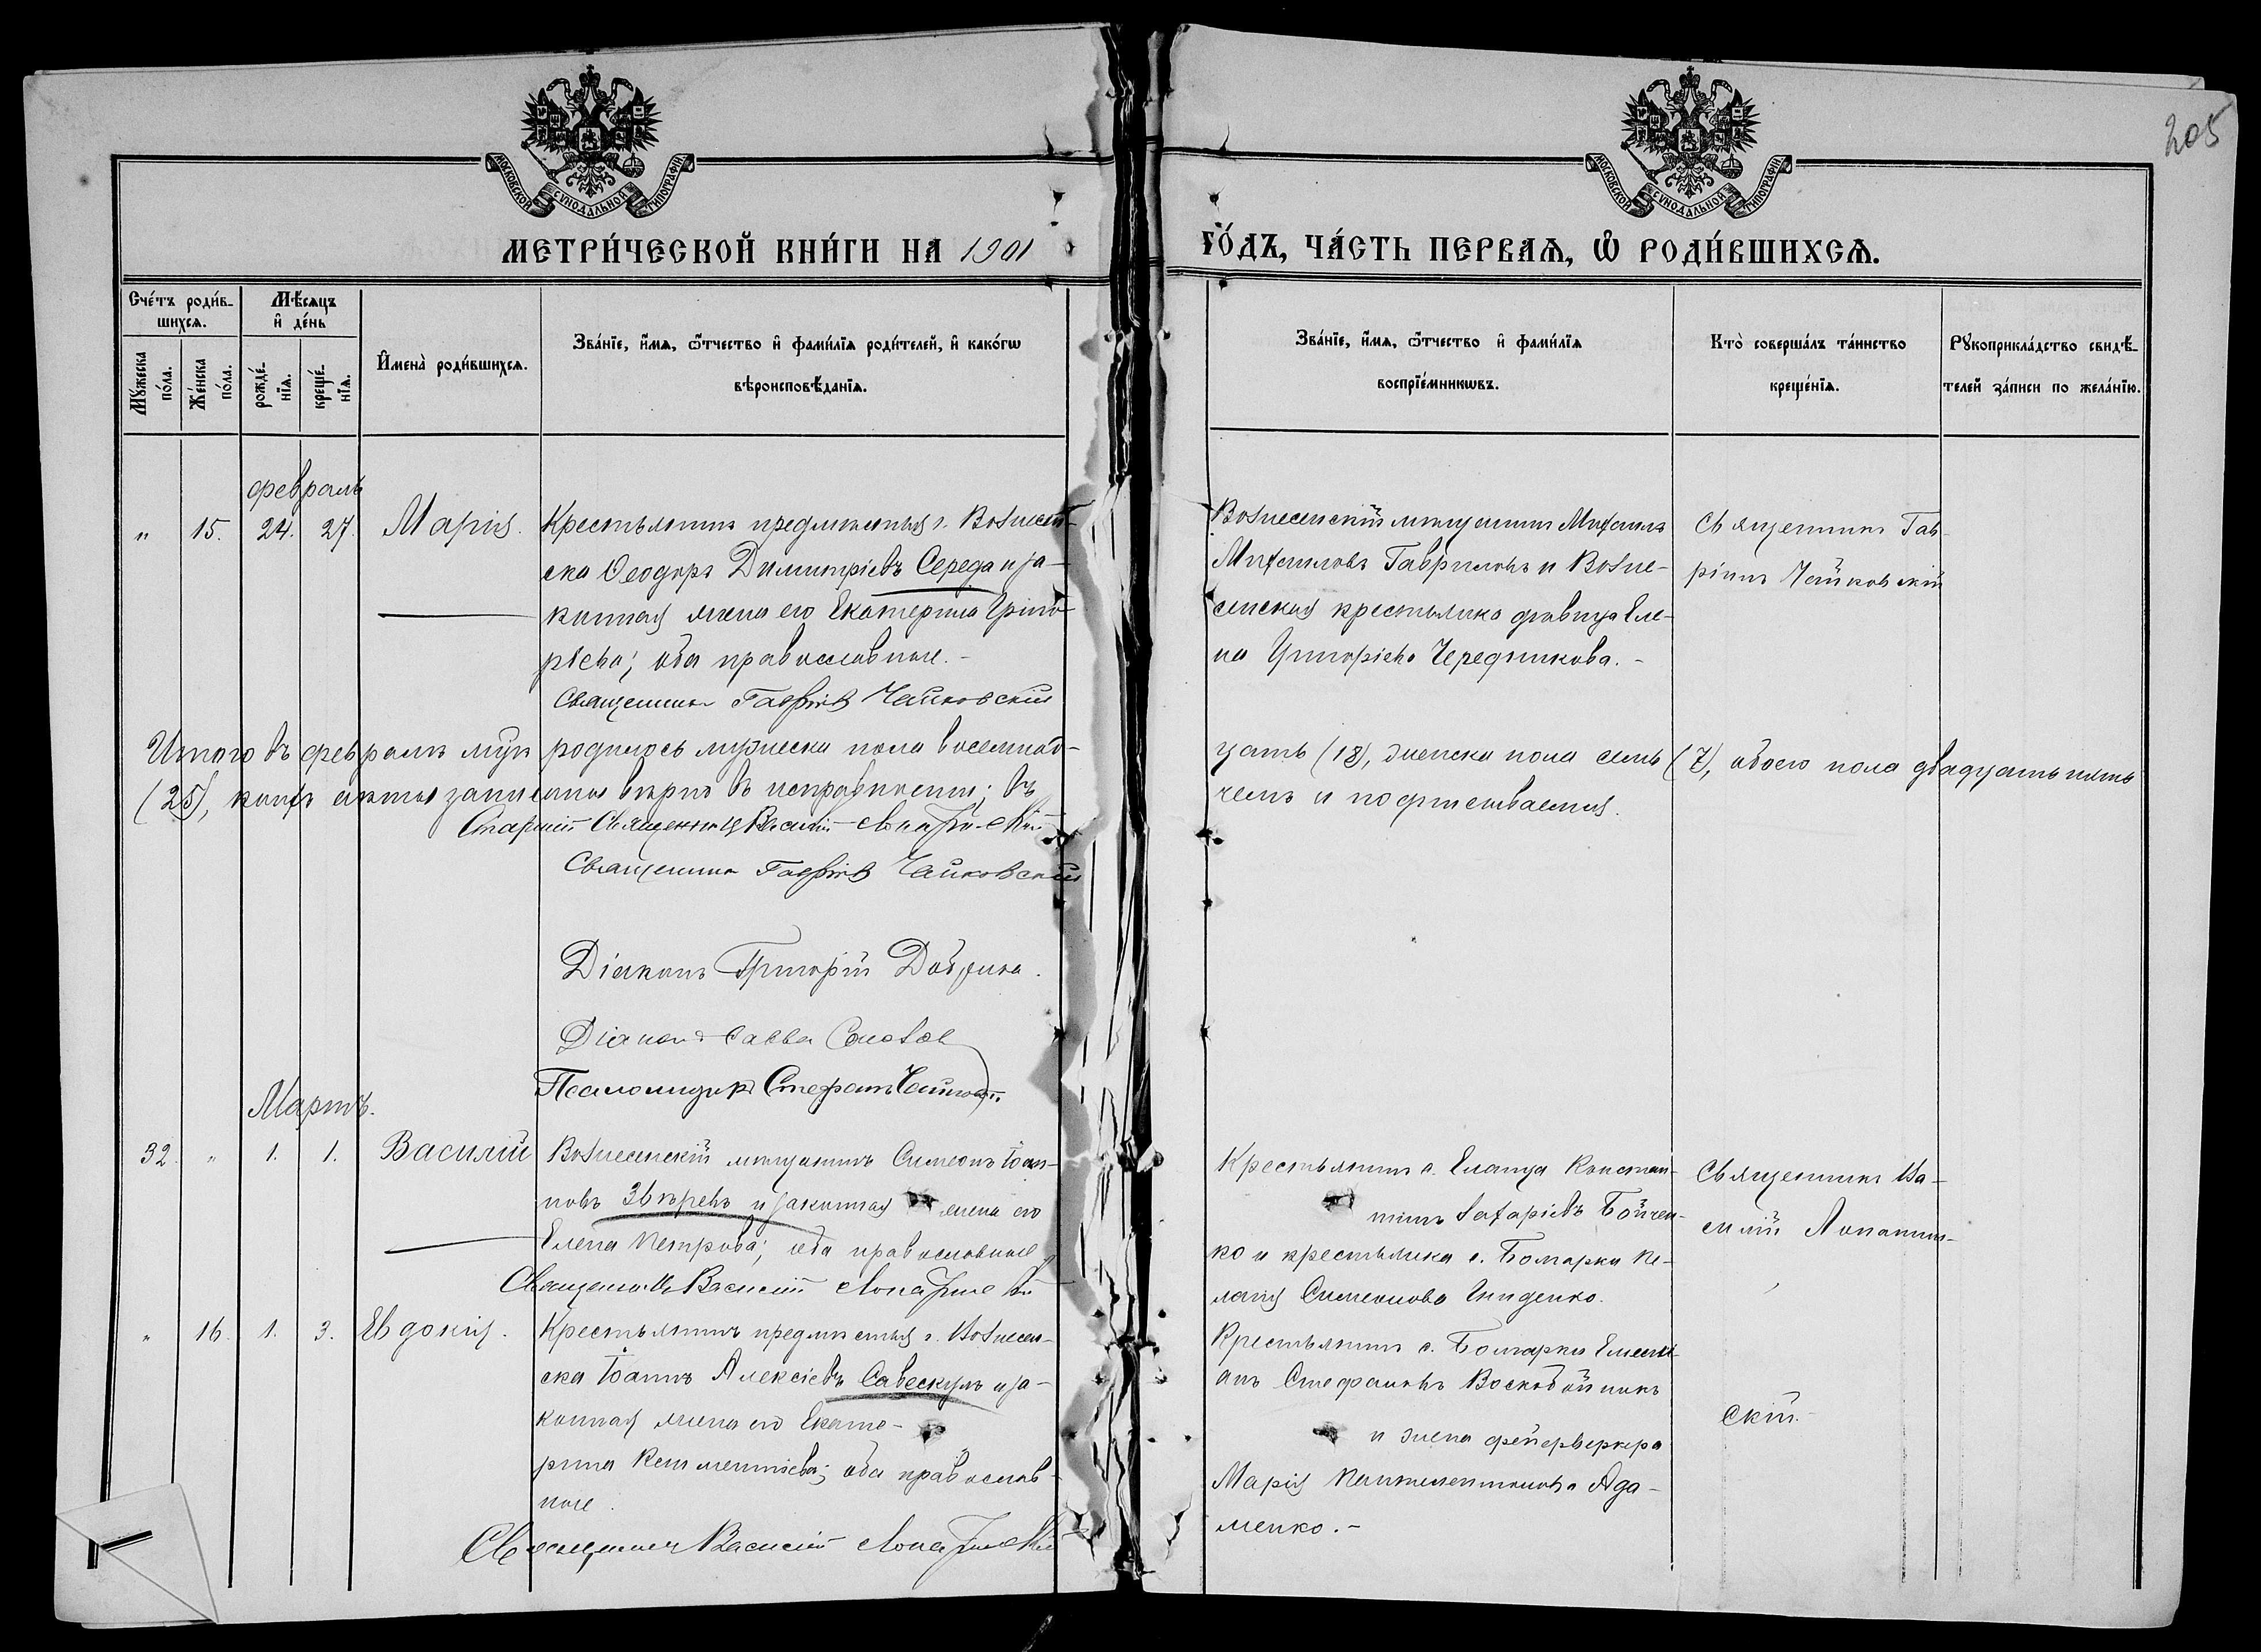 205
МОСКОВСКОЙ СѴНОДАЛЬНОЙ ТИПОГРАФІИ
МОСКОВСКОЙ СѴНОДАЛЬНОЙ ТИПОГРАФІИ
МЕТРИ́ЧЕСКОЙ КНИ́ГИ НА 1901
ГО́ДЪ, ЧА́СТЬ ПЕРВАѦ, Ѿ РОДИ́ВШИХСѦ.
Сче́тъ роди́в-
шихсѧ.
Мѣ́сяцъ
и҆ де́нь
Мꙋ́жеска
по́ла.
Же́нска
по́ла.
рожде́-
нїѧ.
креще́-
нїѧ.
И҆мена̀ роди́вшихсѧ.
Зва́нїе, и҆́мѧ, ѻ҆́тчество и҆ фами́лїѧ роди́телей, и҆ како́гѡ
вѣроисповѣ́данїѧ.
Зва́нїе, и҆́мѧ, ѻ҆́тчество и҆ фами́лїѧ
воспрїе́мникѡвъ.
Кто̀ соверша́лъ та́инство
креще́нїѧ.
Рꙋкоприкла́дство свидѣ́-
телей за́писи по жела́нїю.
февраль
" 15. 24. 27. Марія.
Крестьянинъ предмѣстья г. Вознесен-
ска Ѳеодоръ Димитріевъ Середа и за-
конная жена его Екатерина Григо-
рьева; оба православные.-
Священникъ Гавріилъ Чайковскій
Вознесенскій мѣщанинъ Михаилъ
Михаиловъ Гавриловъ и Возне-
сенская крестьянка дѣвица Еле-
на Григоріева Чередникова.-
Священникъ Гав-
ріилъ Чайковскій
Итого въ февралѣ мцѣ родилось мужеска пола восемнад-
цать (18), женска пола семь (7), обоего пола двадцать пять
(25), коихъ акты записаны вѣрно въ исправности; въ
чемъ и подписываемся.
Старшій Священникъ Василій Лопатинскій
Священникъ Гавріилъ Чайковскій
Діаконъ Григорій
Діаконъ Савва
Псаломщикъ Стефанъ
Мартъ.
32. " 1. 1. Василій
Вознесенскій мѣщанинъ Симеонъ Іоан-
новъ Звѣревъ и законная жена его
Елена Петрова; оба православные
Священникъ Василій Лопатинскій
Крестьянинъ с. Еланца Констан-
тинъ Захаріевъ Бойчен-
ко и крестьянка с. Болгарки Пе-
лагія Симеонова
Священникъ Ва-
силій Лопатин-
скій.-
" 16. 1. 3. Евдокія.
Крестьянинъ предмѣстья г. Вознесен-
ска Іоаннъ Алексіевъ Савескулъ и за-
конная жена его Екате-
рина Климентіева; оба православ-
ные.
Священникъ Василій Лопатинскій
Крестьянинъ с. Болгарки Емели-
анъ Стефановъ Воскобойникъ
и жена фейерверкера
Марія Пантелеимонова Ада-
менко.-